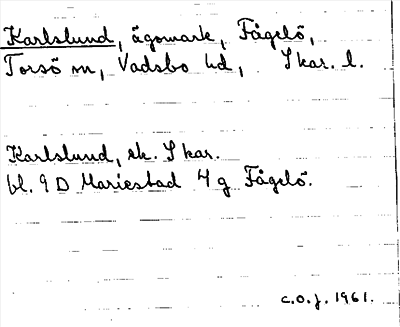 Karlslund, ägomark, Fågelö,
Torsö sn, Vadsbo hd, Skar. l.
Karlslund, ek. Skar.
bl. 9 D Mariestad 4 g Fågelö.
C.O.J. 1961.